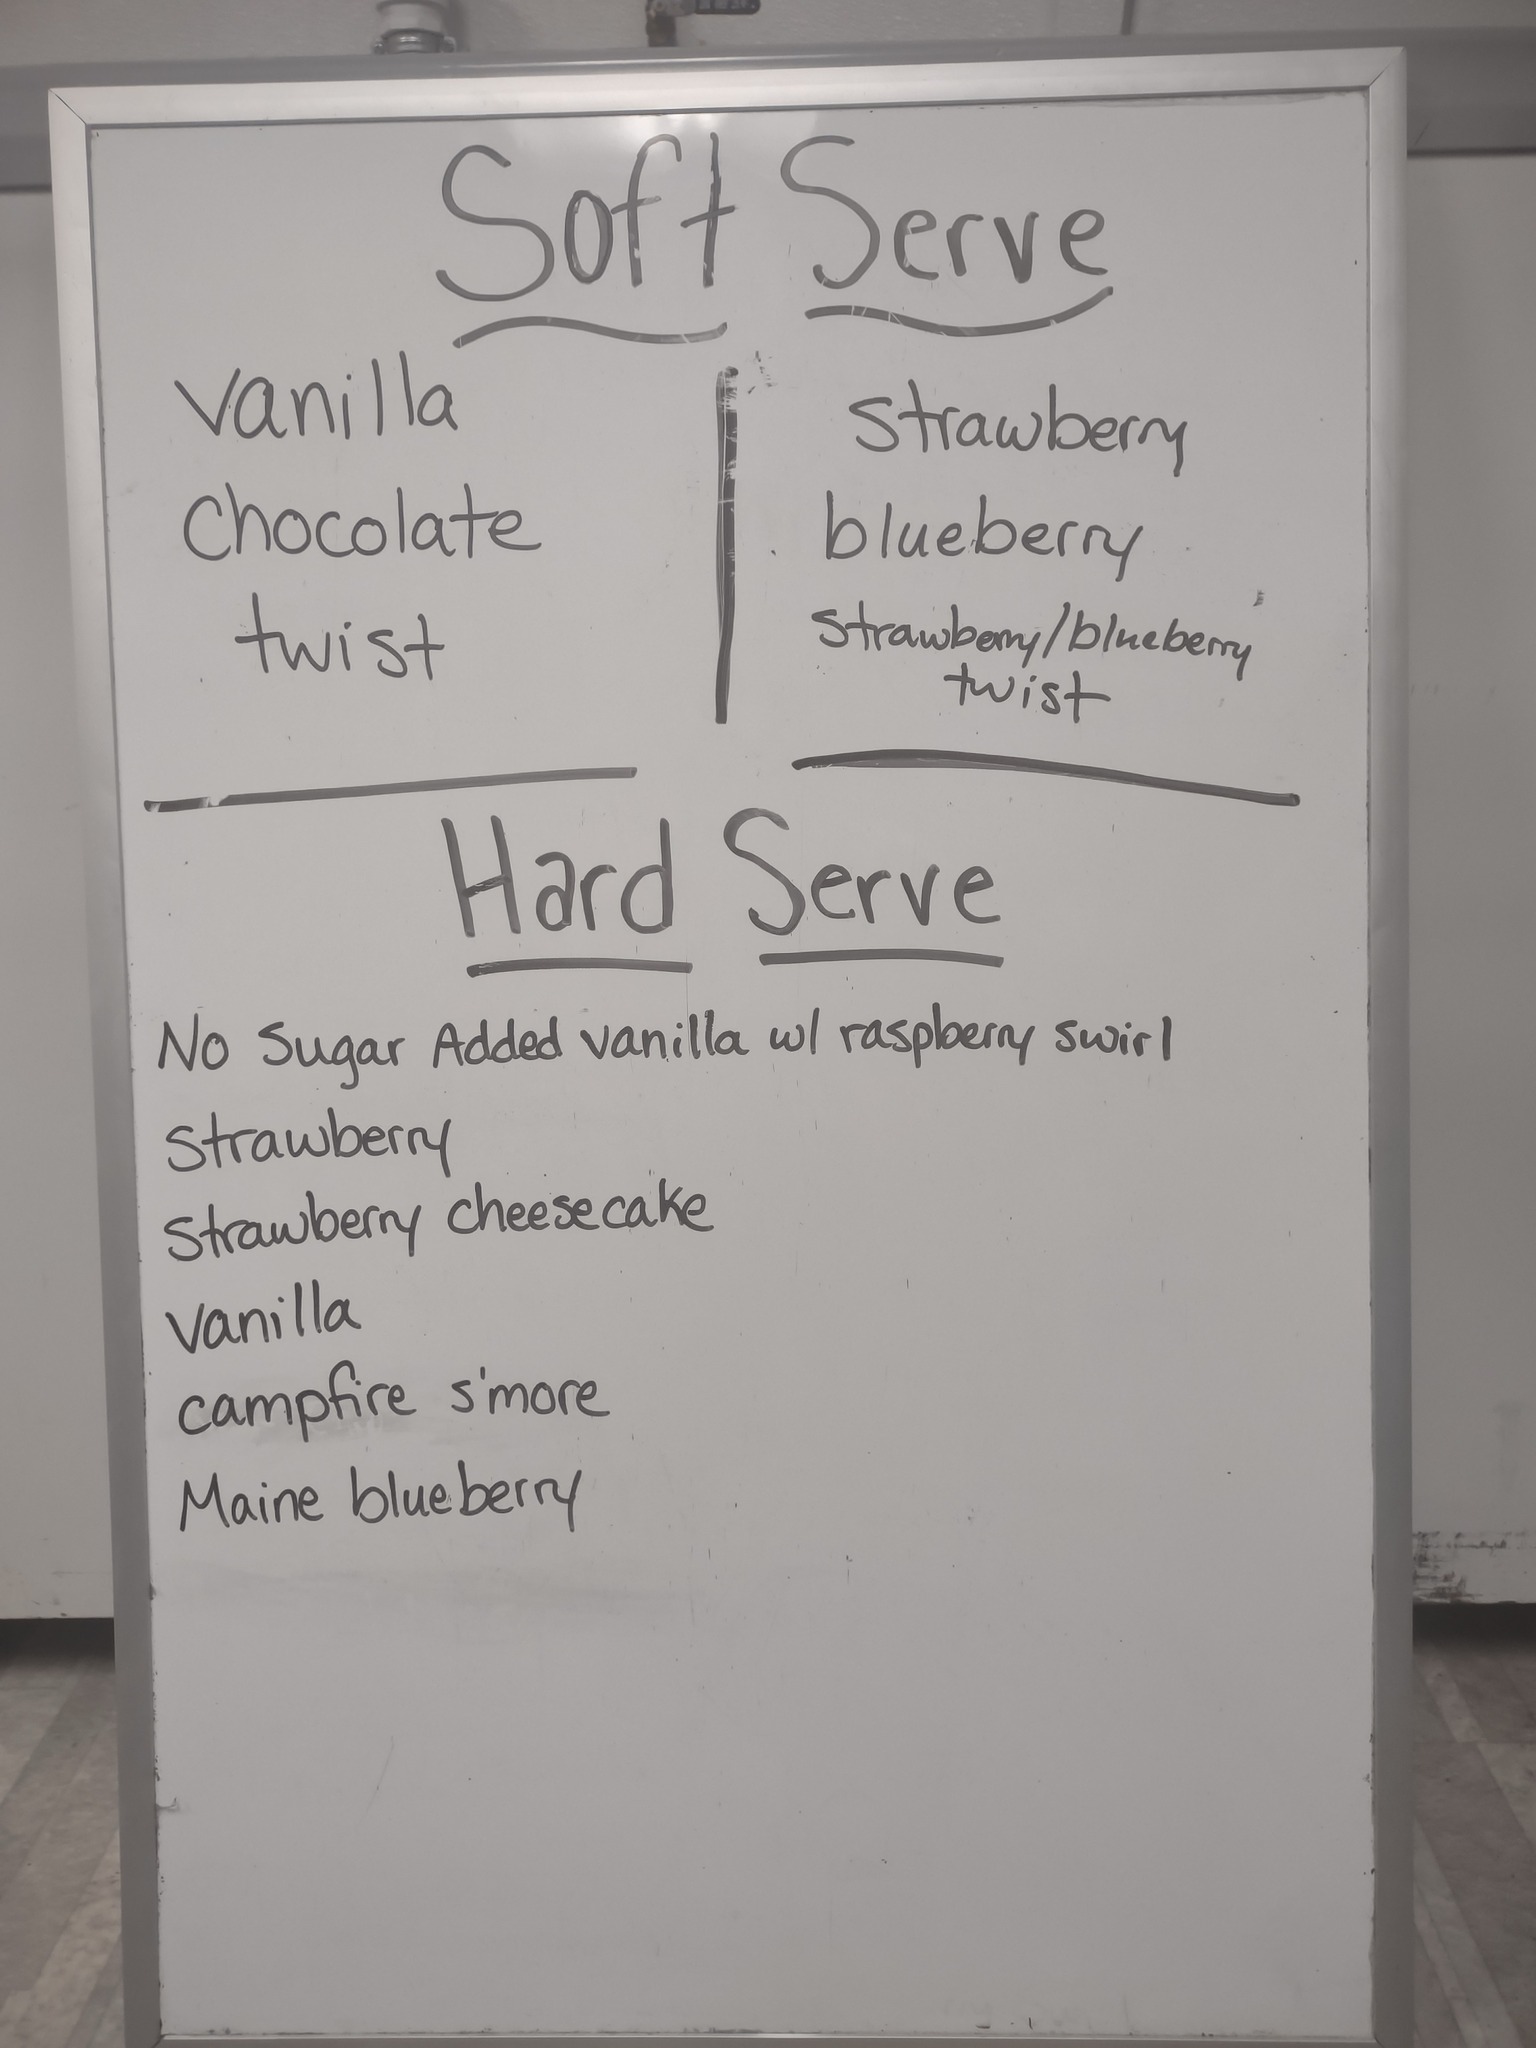 Soft Serve
vanilla
chocolate
twist
strawberry
blueberry
strawberry/blueberry
twist
Hard Serve
No Sugar Added vanilla w/ raspberry swirl
strawberry
strawberry cheesecake
vanilla
campfire s'more
Maine blueberry